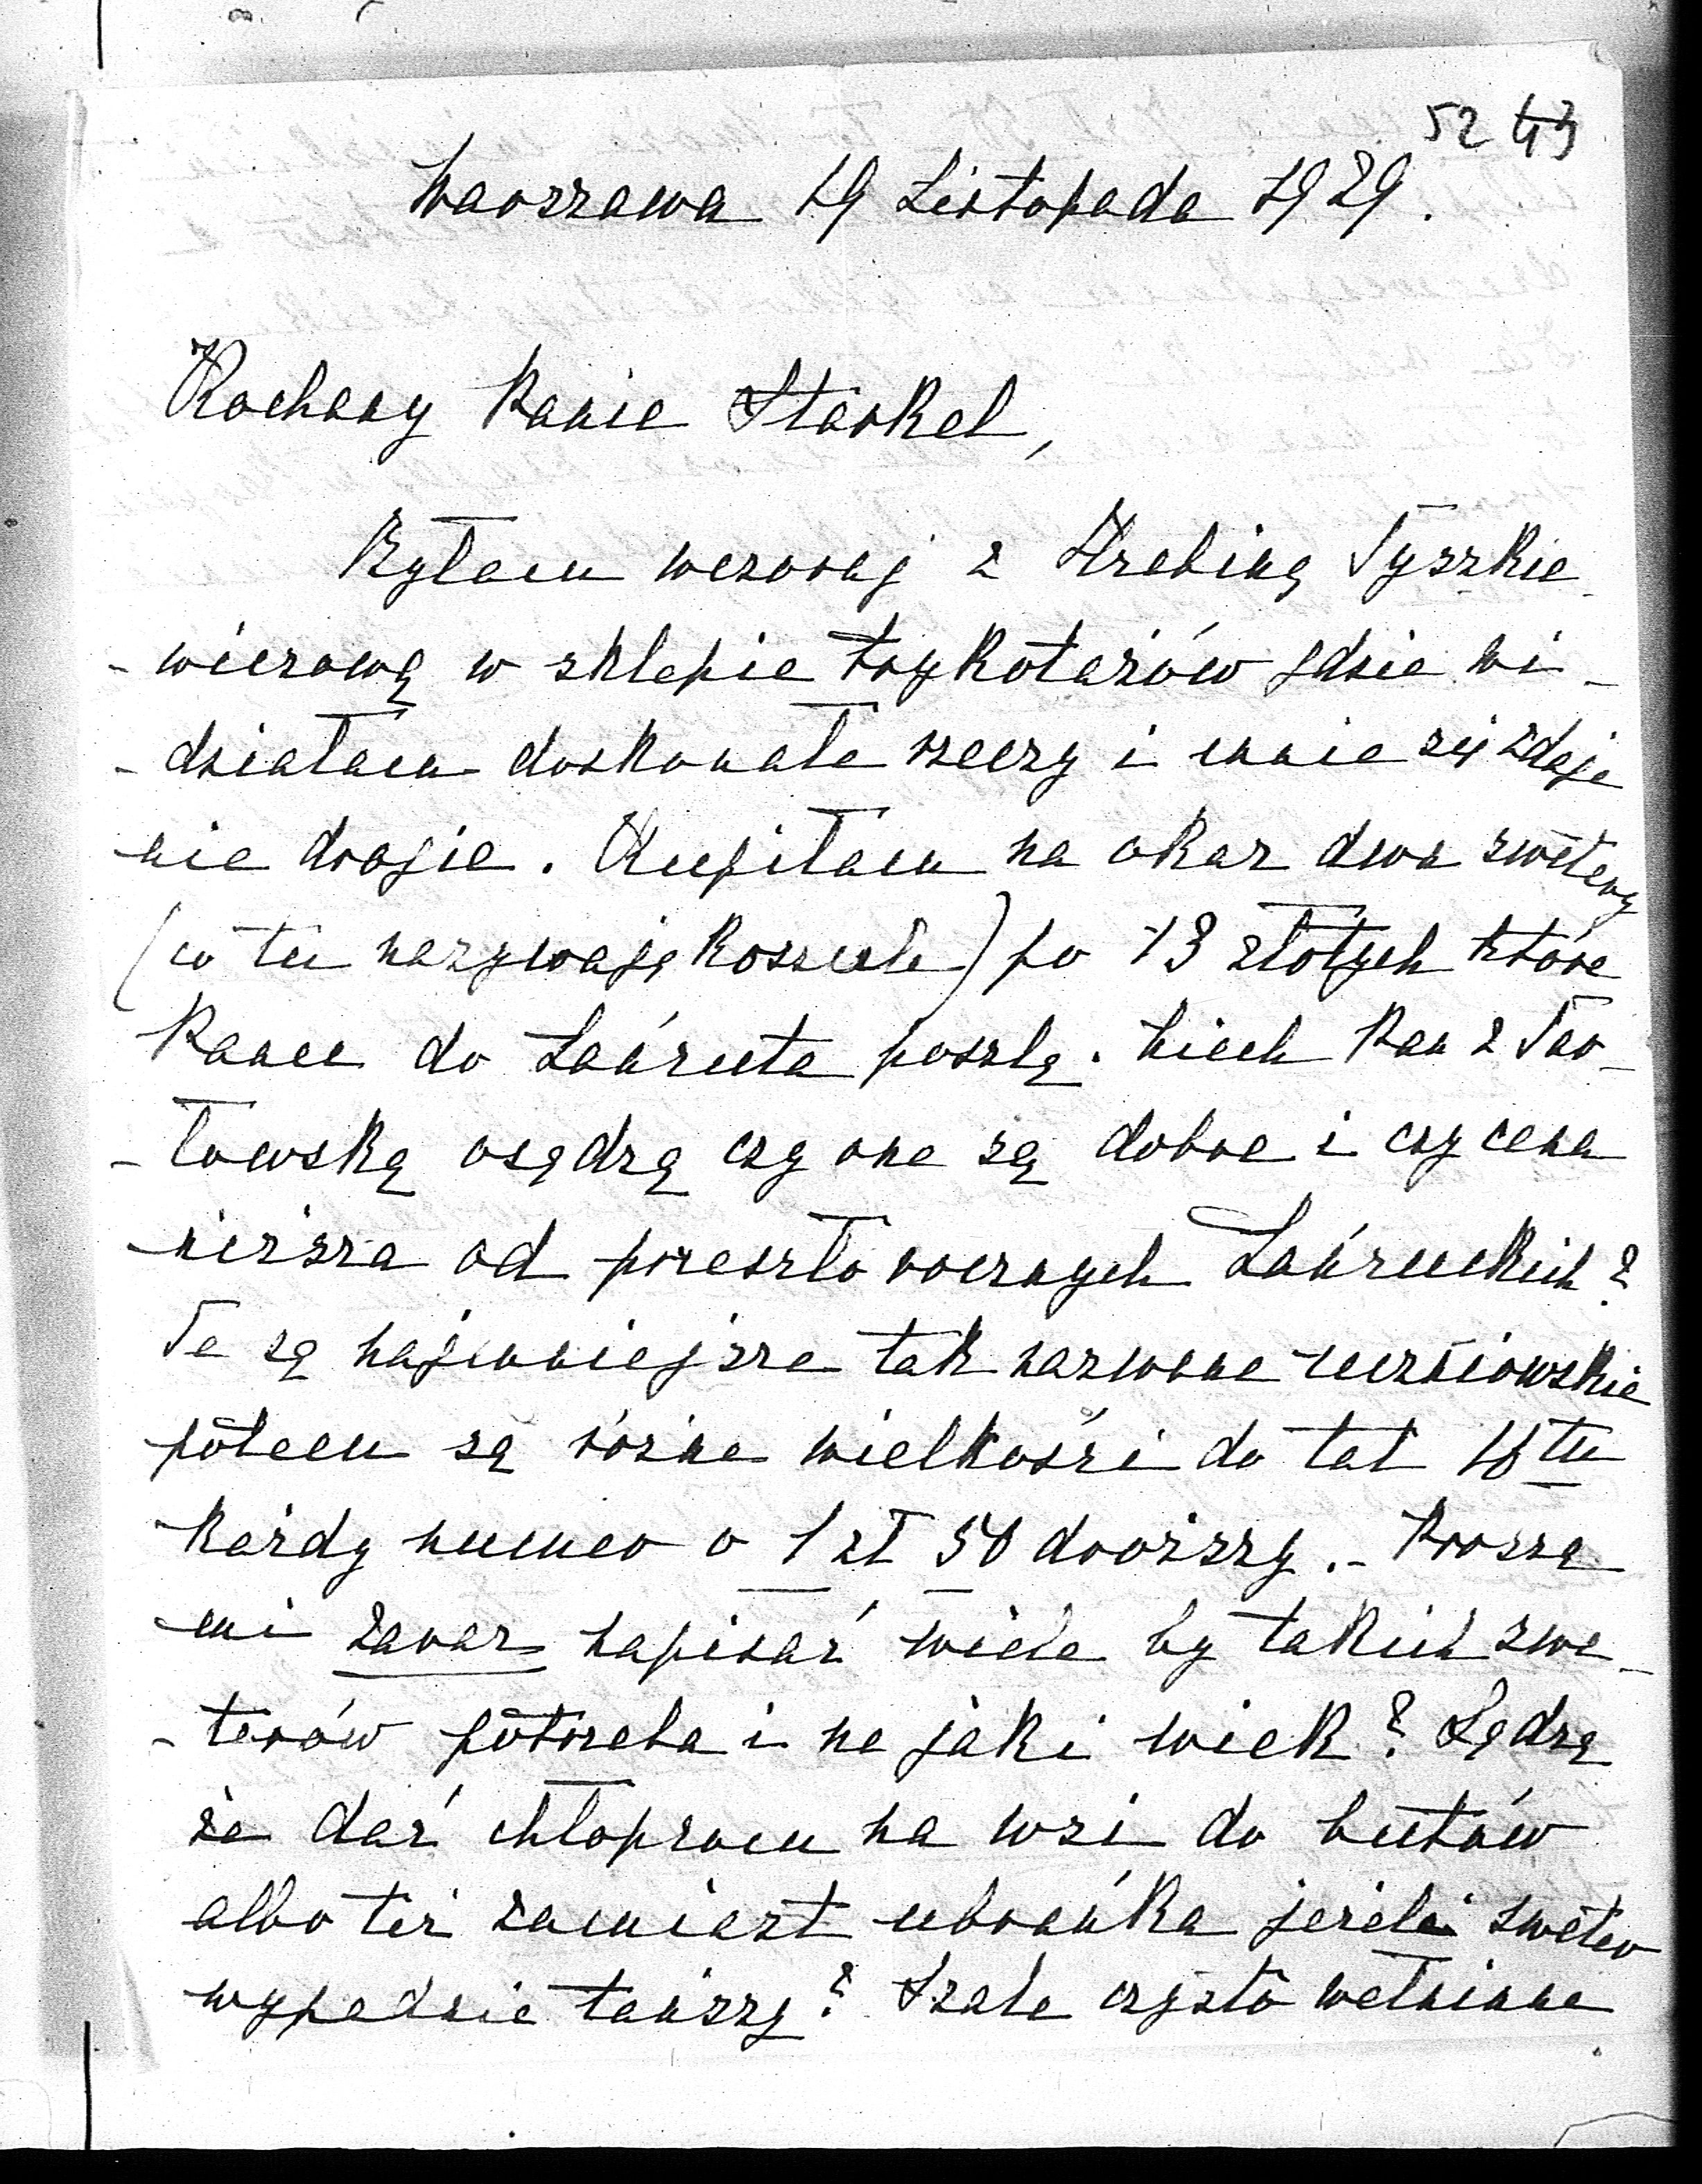 52 43
Warszawa 19 Listopada 1929.
Kochany Panie Starkel,
Byłam wczoraj z Hrabiną Tyszkie-
-wiczową w sklepie trykotarzów gdzie wi-
-działam doskonałe rzeczy i mnie się zdaje
nie drogie. Kupiłam na okaz dwa swetery
(co tu nazywają koszule) po 13 złotych które
Panu do Łańcuta poszlę. Niech Pan z Tar-
-łowską osądzą czy one są dobre i czy cena
niższa od przeszło rocznych Łańcuckich?
Te są najmniejsze tak nazwane uczniowskie
potem są różne wielkości do lat 18tu
każdy numer o 1 zł 50 droższy. - Proszę
mi zaraz napisać wiele by takich swe-
-terów potrzeba i na jaki wiek? Sądzę
że dać chłopcom na wsi do butów
albo też zamiast ubrańka jeżeli sweter
wypadnie tańszy? Szale czysto wełniane